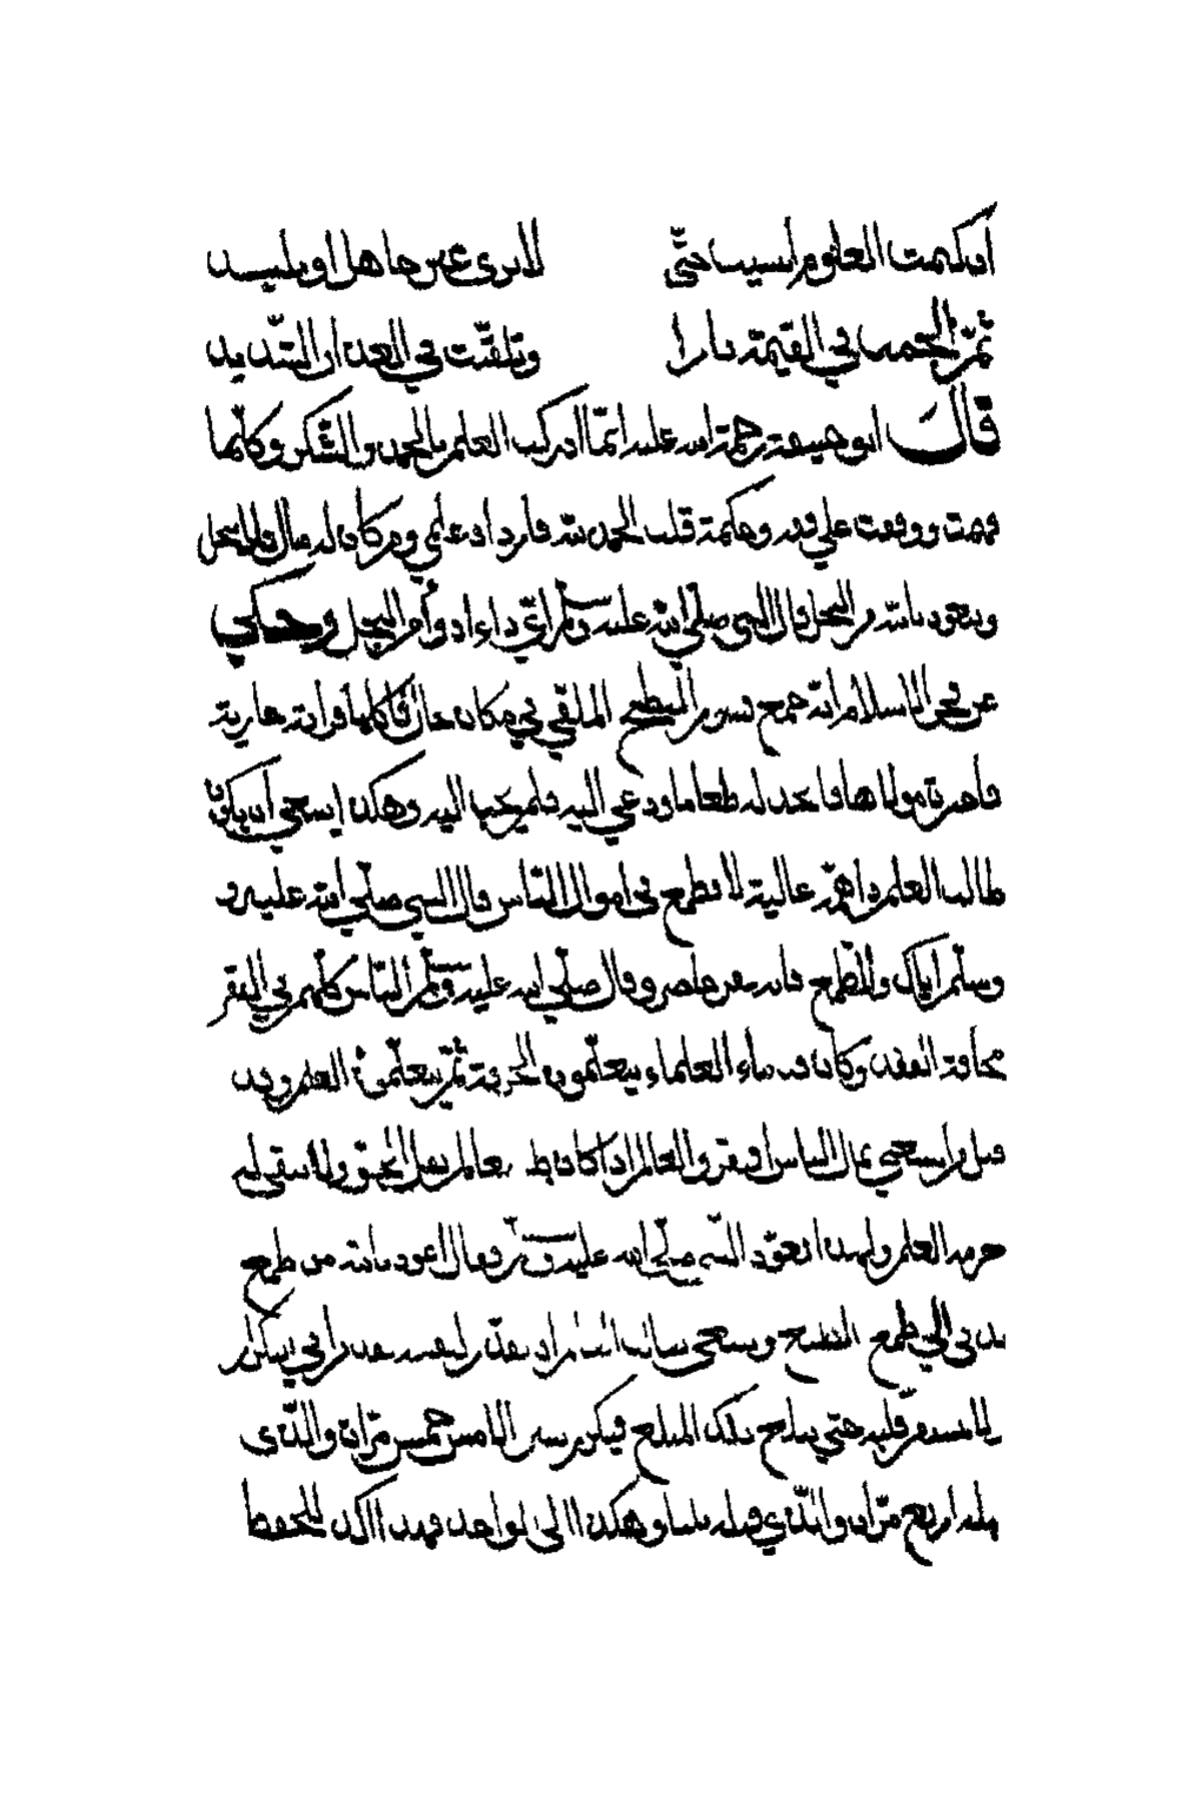 اذ كتمت العلوم انسيت حتى لا يرى غير جاهل او بليد
ثم الجمت في القيمة نارا وتلقيت في العذاب الشديد
قال ابو حنيفة رحمة الله عليه انما ادركت العلم بالحمد والشكر وكلما
فهمت ووقفت على فقه وحكمة قلت الحمد لله فازداد علمي ومن كان له مال فلا يبخل
ويتعوذ بالله من البخل قال النبي صلى الله عليه وسلم اي داء ادوأ من البخل وحكي
عن فخر الاسلام انه جمع قشور البطيخ الملقي في مكان خال فاكلها فراته جارية
فاخبرت مولاها فاتخذ له طعاما ودعي اليه فلم يجب اليه وهكذا ينبغي ان يكون
طالب العلم ذا همة عالية لا يطمع في اموال الناس قال النبي صلى الله عليه و
وسلم اياك والطمع فانه فقر حاضر وقال صلى الله عليه وسلم الناس كلهم في الفقر
مخافة الفقر وكان قدماء العلماء يتعلمون الحرفة ثم يتعلمون العلم وقد
قيل من استغنى بمال الناس افتقر والعالم اذا كان طماعا لم يقل بالحق ولا يبقى له
حرمة العلم ولهذا تعوذ النبي صلى الله عليه وسلم وقال اعوذ بالله من طمع
يدني الى طمع وينبغي لطالب العلم ان يعد ويقدر لنفسه تقديرا في التكرار
لا يستقر قلبه حتى يبلغ ذلك المبلغ فيكرر سبق الامس خمس مرات والذي
قبله اربع مرات والذي قبله ثلاثا وهكذا الى الواحد فهذا اكد للحفظ